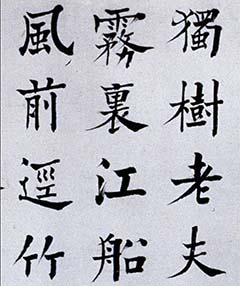 獨樹老夫
霧裏江船
風前逕竹